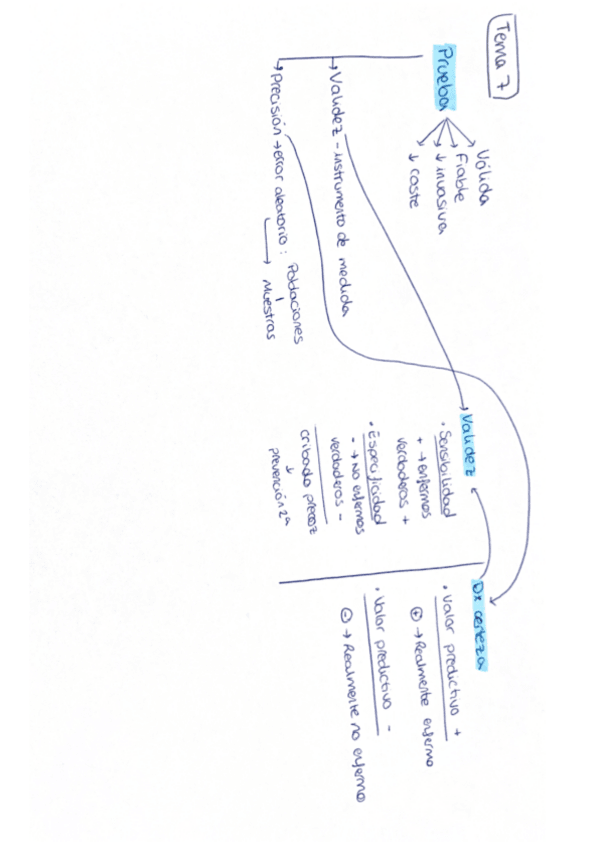 Tema 7
Prueba
Válida
Fiable
↓ invasiva
↓ coste
→ Validez - instrumento de medida
→ Precisión → error aleatorio : Poblaciones
→ Muestras
→ Validez
• Sensibilidad
+ → enfermos
verdaderos +
• Especificidad
- → No enfermos
verdaderos -
cribado precoz
↓
prevención 2ª
Dx certeza
• Valor predictivo +
⊕ → Realmente enfermo
• Valor predictivo -
⊖ → Realmente no enfermo